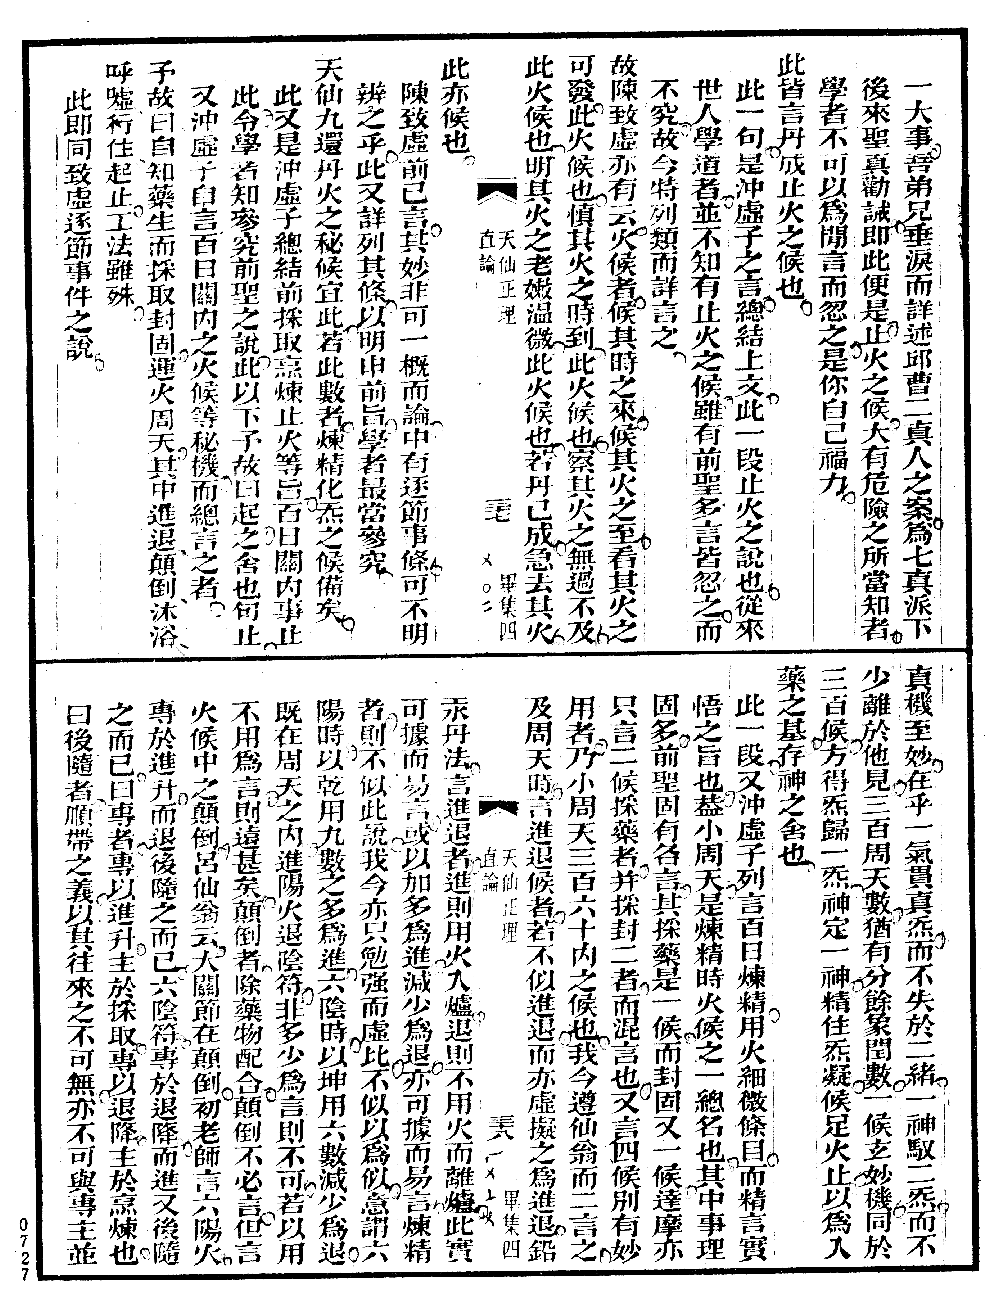 一大事吾弟兄垂淚而詳述邱曹二真人之案為七真派下
後來聖真勸誡即此便是止火之候大有危險之所當知者
學者不可以為閒言而忽之是你自己福力
此皆言丹成止火之候也
此一句是沖虛子之言總結上文此一段止火之說也從來
世人學道者並不知有止火之候雖有前聖多言皆忽之而
不究故今特列類而詳言之
故陳致虛亦有云火候者候其時之來候其火之至看其火之
可發此火候也慎其火之時到此火候也察其火之無過不及
此火候也明其火之老嫩溫微此火候也若丹已成急去其火
此亦候也
陳致虛前已言其妙非可一概而論中有逐節事條可不明
辨之乎此又詳列其條以明申前旨學者最當參究
天仙九還丹火之秘候宜此若此數者煉精化炁之候備矣
此又是沖虛子總結前採取烹煉止火等旨百日關內事止
此令學者知參究前聖之說此以下予故曰起之舍也句止
又沖虛子自言百日關內之火候等秘機而總言之者
予故曰自知藥生而採取封固運火周天其中進退顛倒沐浴
呼噓行住起止工法雖殊
此即同致虛逐節事件之說
天仙正理
直論
三七
畢集四
真機至妙在乎一氣貫真炁而不失於二緒一神馭二炁而不
少離於他見三百周天數猶有分餘象閏數一候玄妙機同於
三百候方得炁歸一炁神定一神精住炁凝候足火止以為入
藥之基存神之舍也
此一段又沖虛子列言百日煉精用火細微條目而精言實
悟之旨也蓋小周天是煉精時火候之一總名也其中事理
固多前聖固有各言其採藥是一候而封固又一候達摩亦
只言二候採藥者并採封二者而混言也又言四候別有妙
用者乃小周天三百六十內之候也我今遵仙翁而二言之
及周天時言進退候者若不似進退而亦虛擬之為進退鉛
汞丹法言進退者進則用火入爐退則不用火而離爐此實
可據而易言或以加多為進減少為退亦可據而易言煉精
者則不似此說我今亦只勉强而虛比不似以為似意謂六
陽時以乾用九數之多為進六陰時以坤用六數減少為退
既在周天之內進陽火退陰符非多少為言則不可若以用
不用為言則遠甚矣顛倒者除藥物配合顛倒不必言但言
火候中之顛倒呂仙翁云大關節在顛倒初老師言六陽火
專於進升而退後隨之而已六陰符專於退降而進又後隨
之而已曰專者專以進升主於採取專以退降主於烹煉也
曰後隨者順帶之義以其往來之不可無亦不可與專主並
天仙正理
直論
三八
畢集四
0727